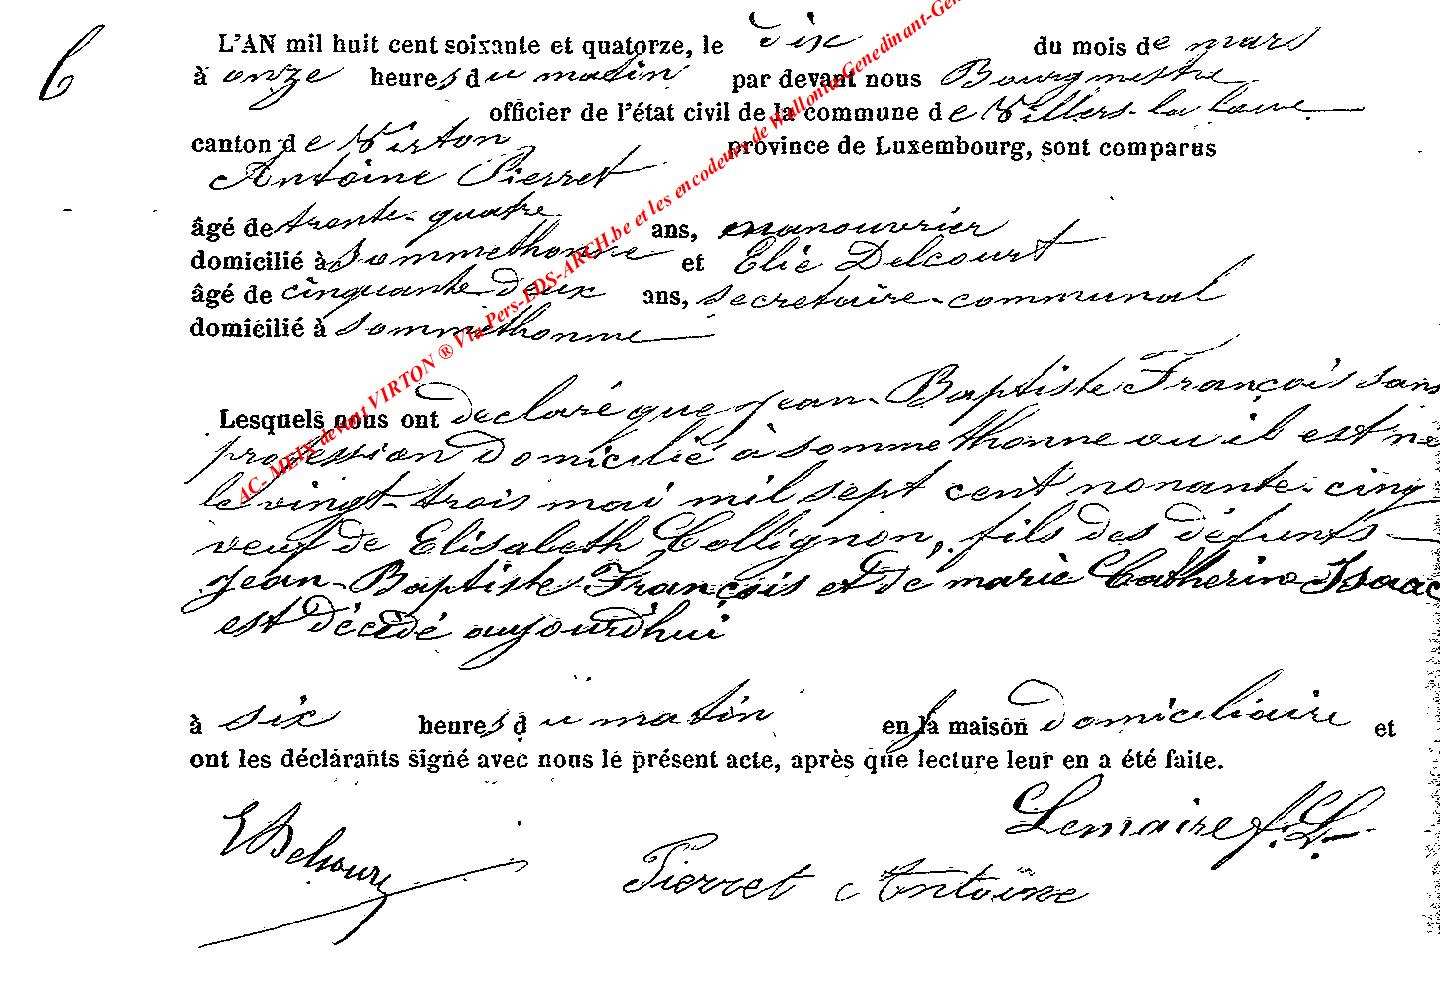 6
L'AN mil huit cent soixante et quatorze, le dix du mois de mars
à onze heures du matin par devant nous Bourgmestre
officier de l'état civil de la commune de Villers-la-loue
canton de Virton province de Luxembourg, sont comparus
Antoine Pierret
âgé de trente-quatre ans, manouvrier
domicilié à Sommethonne et Elie Delcourt
âgé de cinquante deux ans, secretaire-communal
domicilié à Sommethonne
Lesquels nous ont declaré que Jean-Baptiste François sans
profession domicilié à sommethonne ou il est né
le vingt-trois mai mil sept cent nonante-cinq
veuf de Elisabeth Collignon, fils des défunts
Jean-Baptiste François et de marie Catherine Isaac
est décédé aujourd'hui
à six heures du matin en sa maison domiciliaire et
ont les déclarants signé avec nous le présent acte, après que lecture leur en a été faite.
Lemaire f. L.
E Delcourt
Pierret Antoine
AC- MEIX devant VIRTON ® Via Pers-EDS-ARCH.be et les encodeurs de Wallonia-Genedinant-Gene